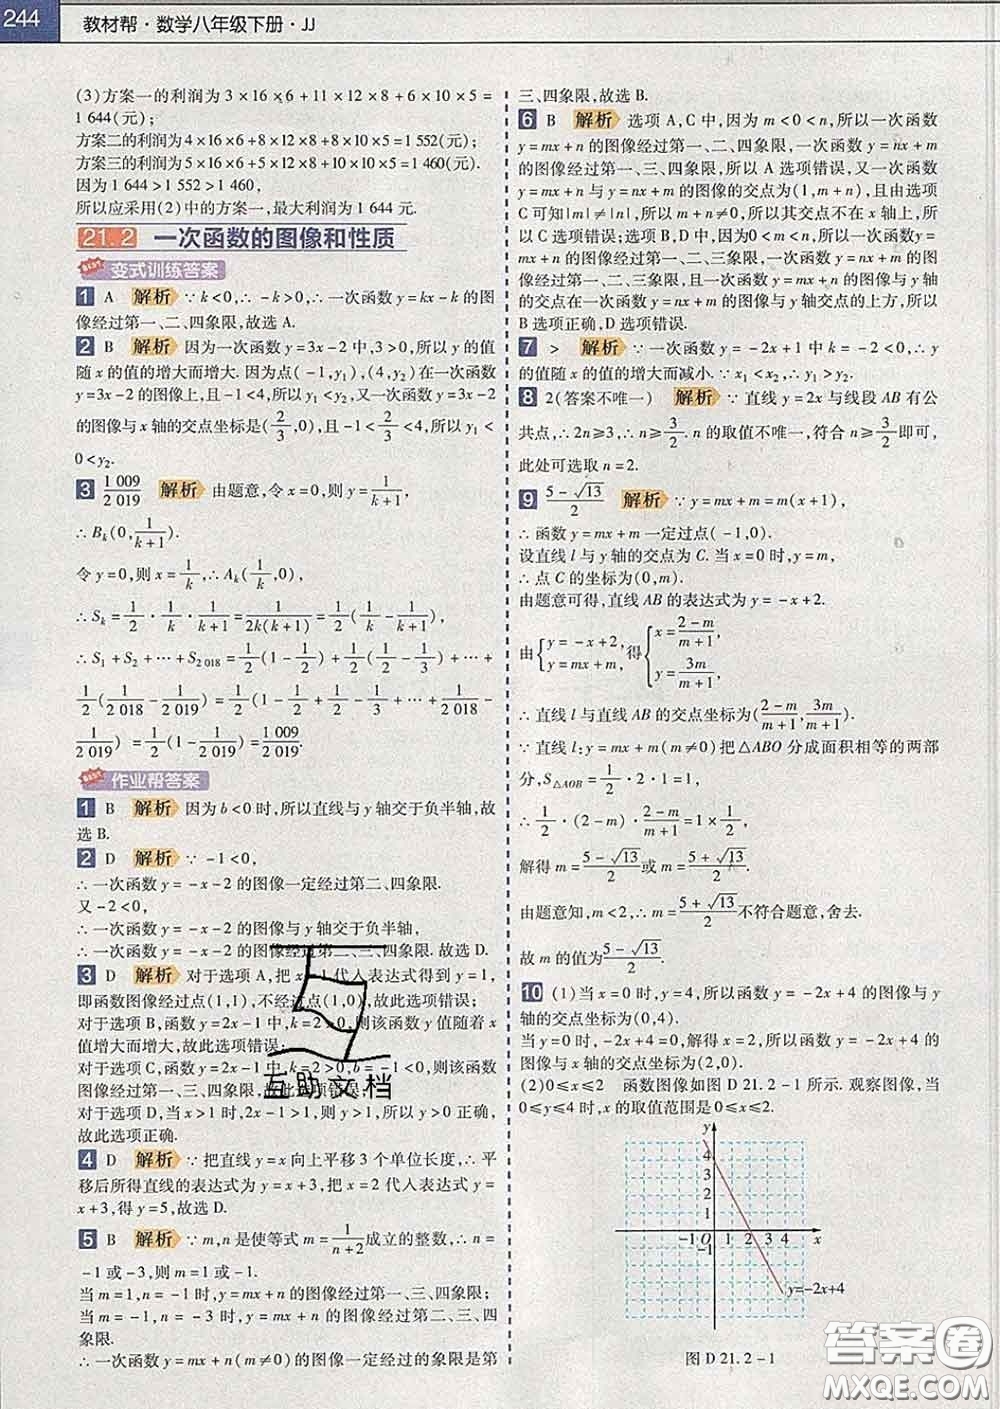 244
教材帮·数学八年级下册·JJ
(3)方案一的利润为 3×16×6+11×12×8+6×10×5=
1 644(元);
方案二的利润为4×16×6+8×12×8+8×10×5=1 552(元);
方案三的利润为5×16×6+5×12×8+10×10×5=1 460(元).
因为 1 644>1 552>1 460,
所以应采用(2)中的方案一,最大利润为 1 644 元.
21.2 一次函数的图像和性质
变式训练答案
1 A 解析 ∵k<0,∴-k>0,∴一次函数 y=kx-k 的图
像经过第一、二、四象限,故选 A.
2 B 解析 因为一次函数 y=3x-2 中,3>0,所以 y 的值
随 x 的值的增大而增大.因为点(-1,y₁),(4,y₂)在一次函数
y=3x-2 的图像上,且-1<4,所以 y₁<y₂,又一次函数 y=3x-2
的图像与 x 轴的交点坐标是(2/3,0),且-1<2/3<4,所以 y₁<
0<y₂.
3 1 009/2 019 解析 由题意,令 x=0,则 y=1/(k+1),
∴B_k(0,1/(k+1)).
令 y=0,则 x=1/k,∴A_k(1/k,0),
∴S_k=1/2·1/k·1/(k+1)=1/(2k(k+1))=1/2(1/k-1/(k+1)),
∴S₁+S₂+…+S₂₀₁₈=1/2(1-1/2)+1/2(1/2-1/3)+…+
1/2(1/2 018-1/2 019)=1/2(1-1/2+1/2-1/3+…+1/2 018-
1/2 019)=1/2(1-1/2 019)=1 009/2 019.
作业帮答案
1 B 解析 因为 b<0 时,所以直线与 y 轴交于负半轴,故
选 B.
2 D 解析 ∵-1<0,
∴一次函数 y=-x-2 的图像一定经过第二、四象限.
又-2<0,
∴一次函数 y=-x-2 的图像与 y 轴交于负半轴,
∴一次函数 y=-x-2 的图像经过第二、三、四象限.故选 D.
3 D 解析 对于选项 A,把 x=1 代入表达式得到 y=1,
即函数图像经过点(1,1),不经过点(1,0),故此选项错误;
对于选项 B,函数 y=2x-1 中,k=2>0,则该函数 y 值随着 x
值增大而增大,故此选项错误;
对于选项 C,函数 y=2x-1 中,k=2>0,b=-1<0,则该函数
图像经过第一、三、四象限,故此选项错误;
对于选项 D,当 x>1 时,2x-1>1,则 y>1,所以 y>0 正确,
故此选项正确.
4 D 解析 ∵把直线 y=x 向上平移 3 个单位长度,∴平
移后所得直线的表达式为 y=x+3,把 x=2 代入表达式 y=
x+3,得 y=5,故选 D.
5 B 解析 ∵m,n 是使等式 m=1/(n+2)成立的整数,∴n=
-1 或-3,则 m=1 或-1.
当 m=1,n=-1 时,y=mx+n 的图像经过第一、三、四象限;
当 m=-1,n=-3 时,y=mx+n 的图像经过第二、三、四
象限.
∴一次函数 y=mx+n(m≠0)的图像一定经过的象限是第
三、四象限,故选 B.
6 B 解析 选项 A,C 中,因为 m<0<n,所以一次函数
y=mx+n 的图像经过第一、二、四象限,一次函数 y=nx+m
的图像经过第一、三、四象限,所以 A 选项错误;一次函数
y=mx+n 与 y=nx+m 的图像的交点为(1,m+n),且由选项
C 可知|m|≠|n|,所以 m+n≠0,所以其交点不在 x 轴上,所
以 C 选项错误;选项 B,D 中,因为0<m<n,所以一次函数y=
mx+n 的图像经过第一、二、三象限,一次函数 y=nx+m 的图
像经过第一、二、三象限,且一次函数 y=mx+n 的图像与 y 轴
的交点在一次函数 y=nx+m 的图像与 y 轴交点的上方,所以
B 选项正确,D 选项错误.
7 > 解析 ∵一次函数 y=-2x+1 中 k=-2<0,∴y
的值随 x 的值的增大而减小.∵x₁<x₂,∴y₁>y₂.
8 2(答案不唯一) 解析 ∵直线 y=2x 与线段 AB 有公
共点,∴2n≥3,∴n≥3/2.n 的取值不唯一,符合 n≥3/2即可,
此处可选取 n=2.
9 (5-√13)/2 解析 ∵y=mx+m=m(x+1),
∴函数 y=mx+m 一定过点(-1,0).
设直线 l 与 y 轴的交点为 C.当 x=0时,y=m,
∴点 C 的坐标为(0,m).
由题意可得,直线 AB 的表达式为 y=-x+2.
由{y=-x+2, y=mx+m, 得{x=(2-m)/(m+1), y=3m/(m+1).
∴直线 l 与直线 AB 的交点坐标为((2-m)/(m+1),3m/(m+1)).
∵直线 l:y=mx+m(m≠0)把△ABO 分成面积相等的两部
分,S△AOB=1/2·2·1=1,
∴1/2·(2-m)·(2-m)/(m+1)=1×1/2,
解得 m=(5-√13)/2或 m=(5+√13)/2.
由题意知,m<2,∴m=(5+√13)/2不符合题意,舍去.
故 m 的值为(5-√13)/2.
10 (1)当 x=0 时,y=4,所以函数 y=-2x+4 的图像与 y
轴的交点坐标为(0,4).
当 y=0 时,-2x+4=0,解得 x=2,所以函数 y=-2x+4 的
图像与 x 轴的交点坐标为(2,0).
(2)0≤x≤2 函数图像如图 D 21.2-1 所示.观察图像,当
0≤y≤4 时,x 的取值范围是 0≤x≤2.
y
4
3
2
1
-1 O 1 2 3 4 x
-1
y=-2x+4
图 D 21.2-1
互助文档
答案圈
MXQE.COM